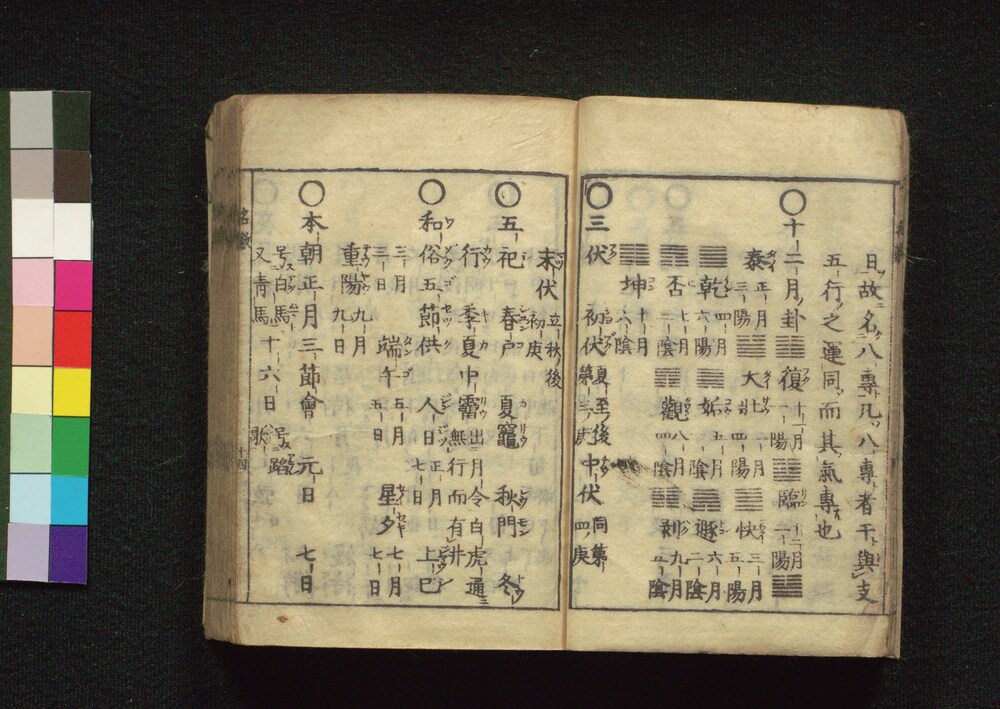 日故名八專凡八專者干與支
五行之運同而其氣專也
〇十二月卦 復十一月一陽 臨十二月二陽
泰正月三陽 大壮二月四陽 快三月五陽
乾四月六陽 姤五月一陰 遯六月二陰
否七月三陰 觀八月四陰 剥九月五陰
坤十月六陰
〇三伏 初伏夏至後第三庚 中伏同第四庚
末伏立秋後初庚
〇五祀 春戸 夏竈 秋門 冬
行 季夏中霤出月令白虎通無行而有井
〇和俗五節供 人日正月七日 上巳
三月三日 端午五月五日 星夕七月七日
重陽九月九日
〇本朝正月三節會 元日 七日
号白馬又青馬 十六日号踏歌
名數
十四